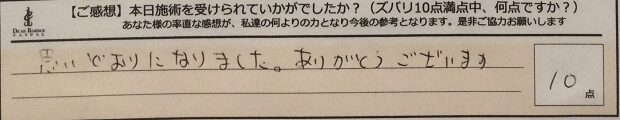 【ご感想】本日施術を受けられていかがでしたか？（ズバリ10点満点中、何点ですか？）
あなた様の率直な感想が、私達の何よりの力となり今後の参考となります。是非ご協力お願いします
思いどおりになりました。ありがとうございます
10点